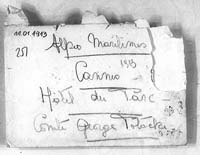 11.01.1913
251
Alpes Maritimes
Cannes 1913
Hôtel du Parc
Comte George Potocki